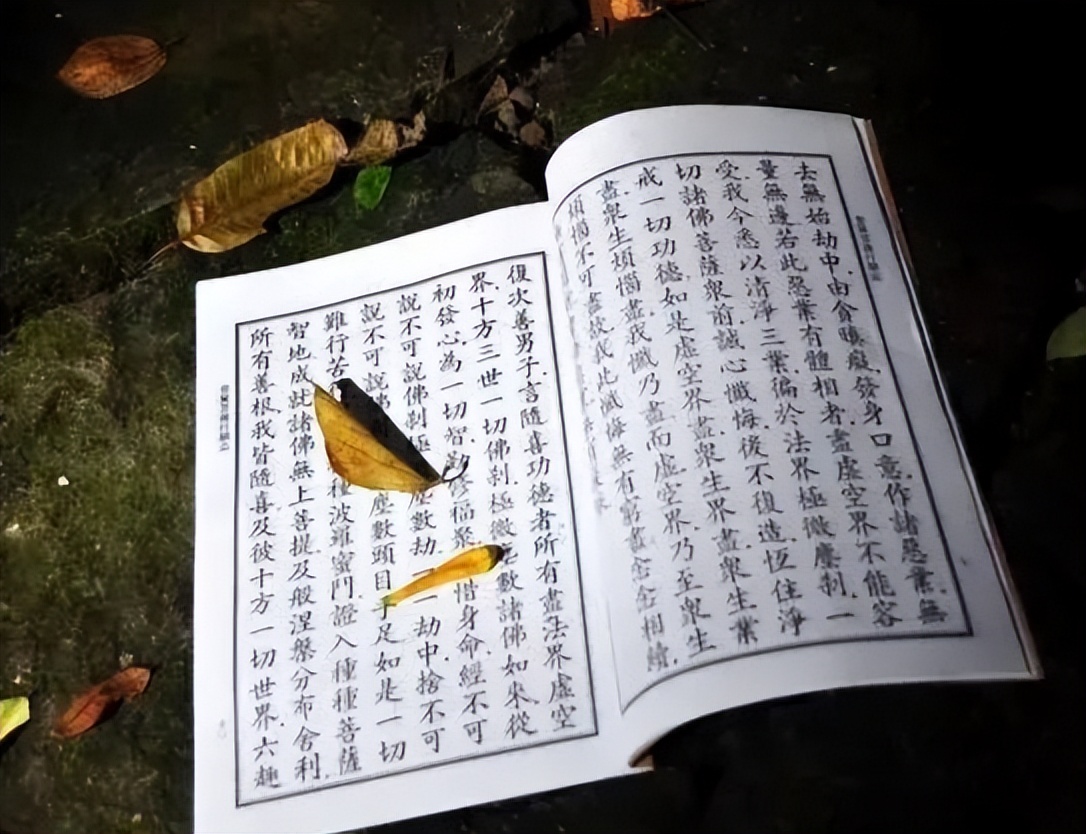 去無始劫中,由貪瞋癡,發身口意,作諸惡業,無
量無邊若此惡業有體相者,盡虛空界不能容
受,我今悉以清淨三業,徧於法界極微塵剎,一
切諸佛菩薩衆前,誠心懺悔,後不復造,恆住淨
戒一切功德,如是虛空界盡,衆生界盡,衆生業
盡,衆生煩惱盡,我懺乃盡,而虛空界,乃至衆生
煩惱不可盡故,我此懺悔無有窮盡,念念相續,
復次善男子,言隨喜功德者,所有盡法界,虛空
界,十方三世一切佛剎,極微數諸佛如來,從
初發心為一切智,勤修福聚惜身命,經不可
說不可說佛剎極塵數劫,一劫中捨不可
說不可說佛塵數頭目手足,如是一切
難行苦種波羅蜜門,證入種種菩薩
智地,成就諸佛無上菩提,及般涅槃分布舍利,
所有善根,我皆隨喜,及彼十方一切世界,六趣